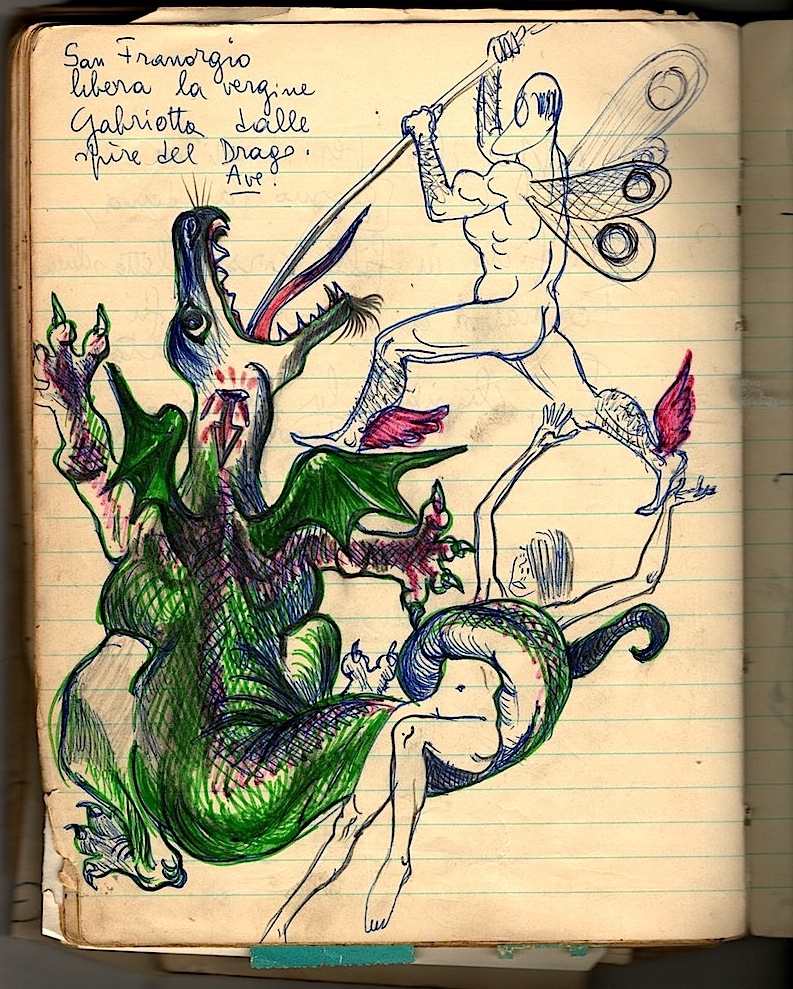 San Franorgio
libera la vergine
Gabriotta dalle
spire del Drago.
Ave.